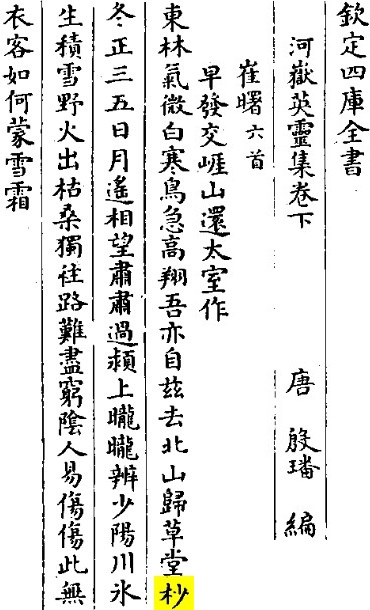 欽定四庫全書
河嶽英靈集卷下
唐 殷璠 編
崔曙六首
早發交崕山還太室作
東林氣微白寒鳥急高翔吾亦自兹去北山歸草堂杪
冬正三五日月遙相望肅肅過潁上曨曨辨少陽川氷
生積雪野火出枯桑獨往路難盡窮陰人易傷傷此無
衣客如何蒙雪霜